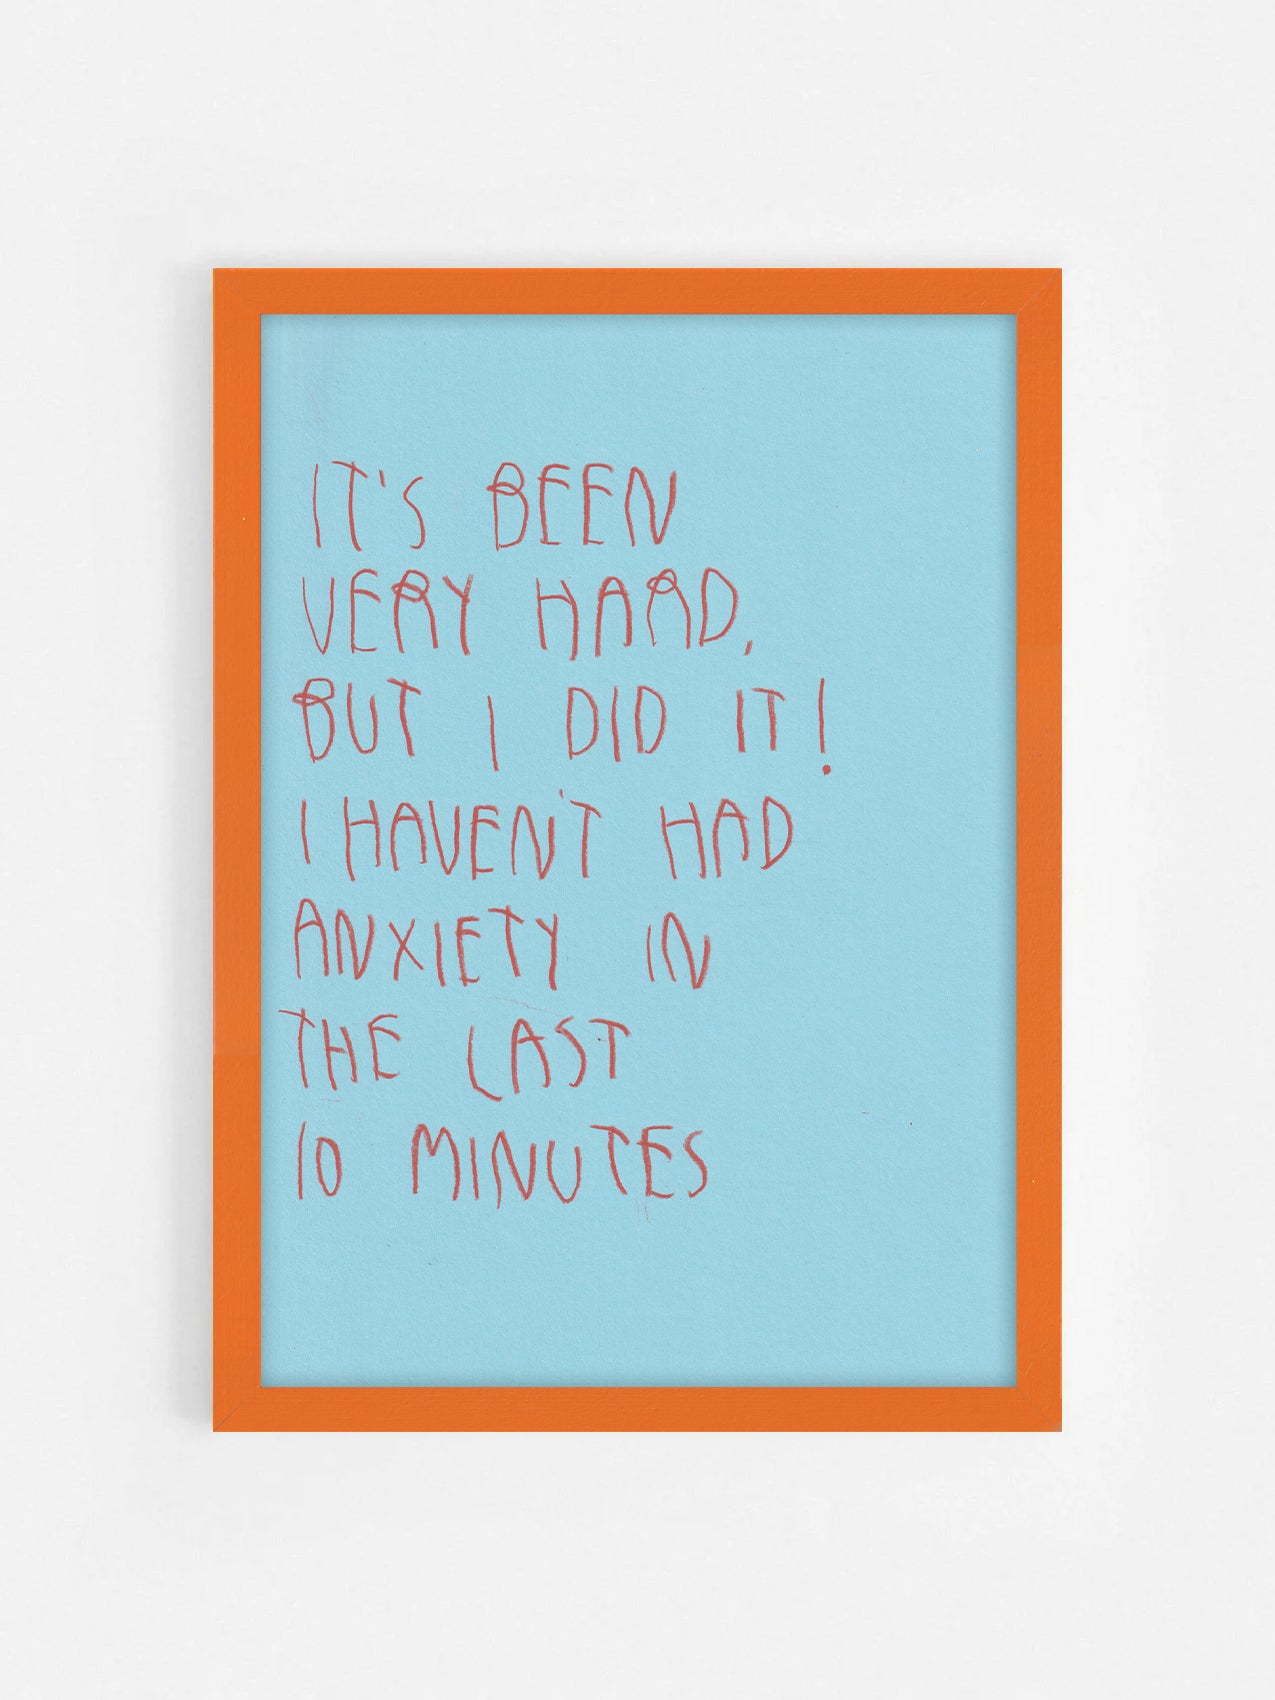 IT'S BEEN
VERY HARD,
BUT I DID IT!
I HAVEN'T HAD
ANXIETY IN
THE LAST
10 MINUTES